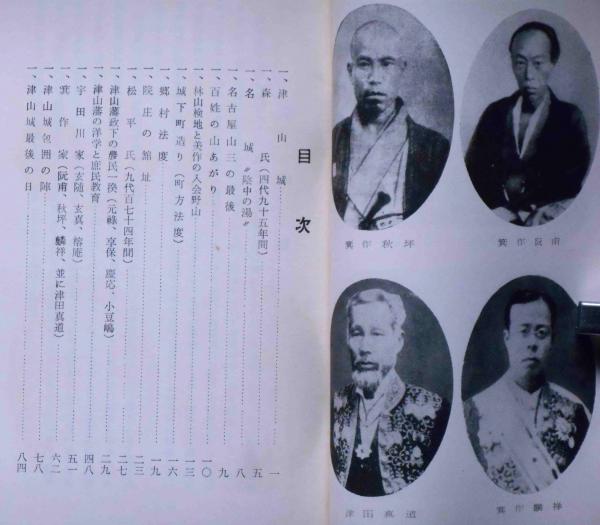 箕作阮甫
箕作秋坪
箕作麟祥
津田真道
目次
一、津山城……一
一、森氏(四代九十五年間)……五
一、名城〝陰中の湯〟……八
一、名古屋山三の最後……九
一、百姓の山あがり……一〇
一、林山検地と美作の入会野山……一三
一、城下町造り(町方法度)……一六
一、郷村法度……一九
一、院庄の館址……二三
一、松平氏(九代百七十四年間)……二七
一、津山藩政下の農民一揆(元禄、享保、慶応、小豆嶋)……二九
一、津山藩の洋学と庶民教育……四八
一、宇田川家(玄随、玄真、榕庵)……五一
一、箕作家(阮甫、秋坪、麟祥、並に津田真道)……六二
一、津山城包囲の陣……七八
一、津山城最後の日……八四